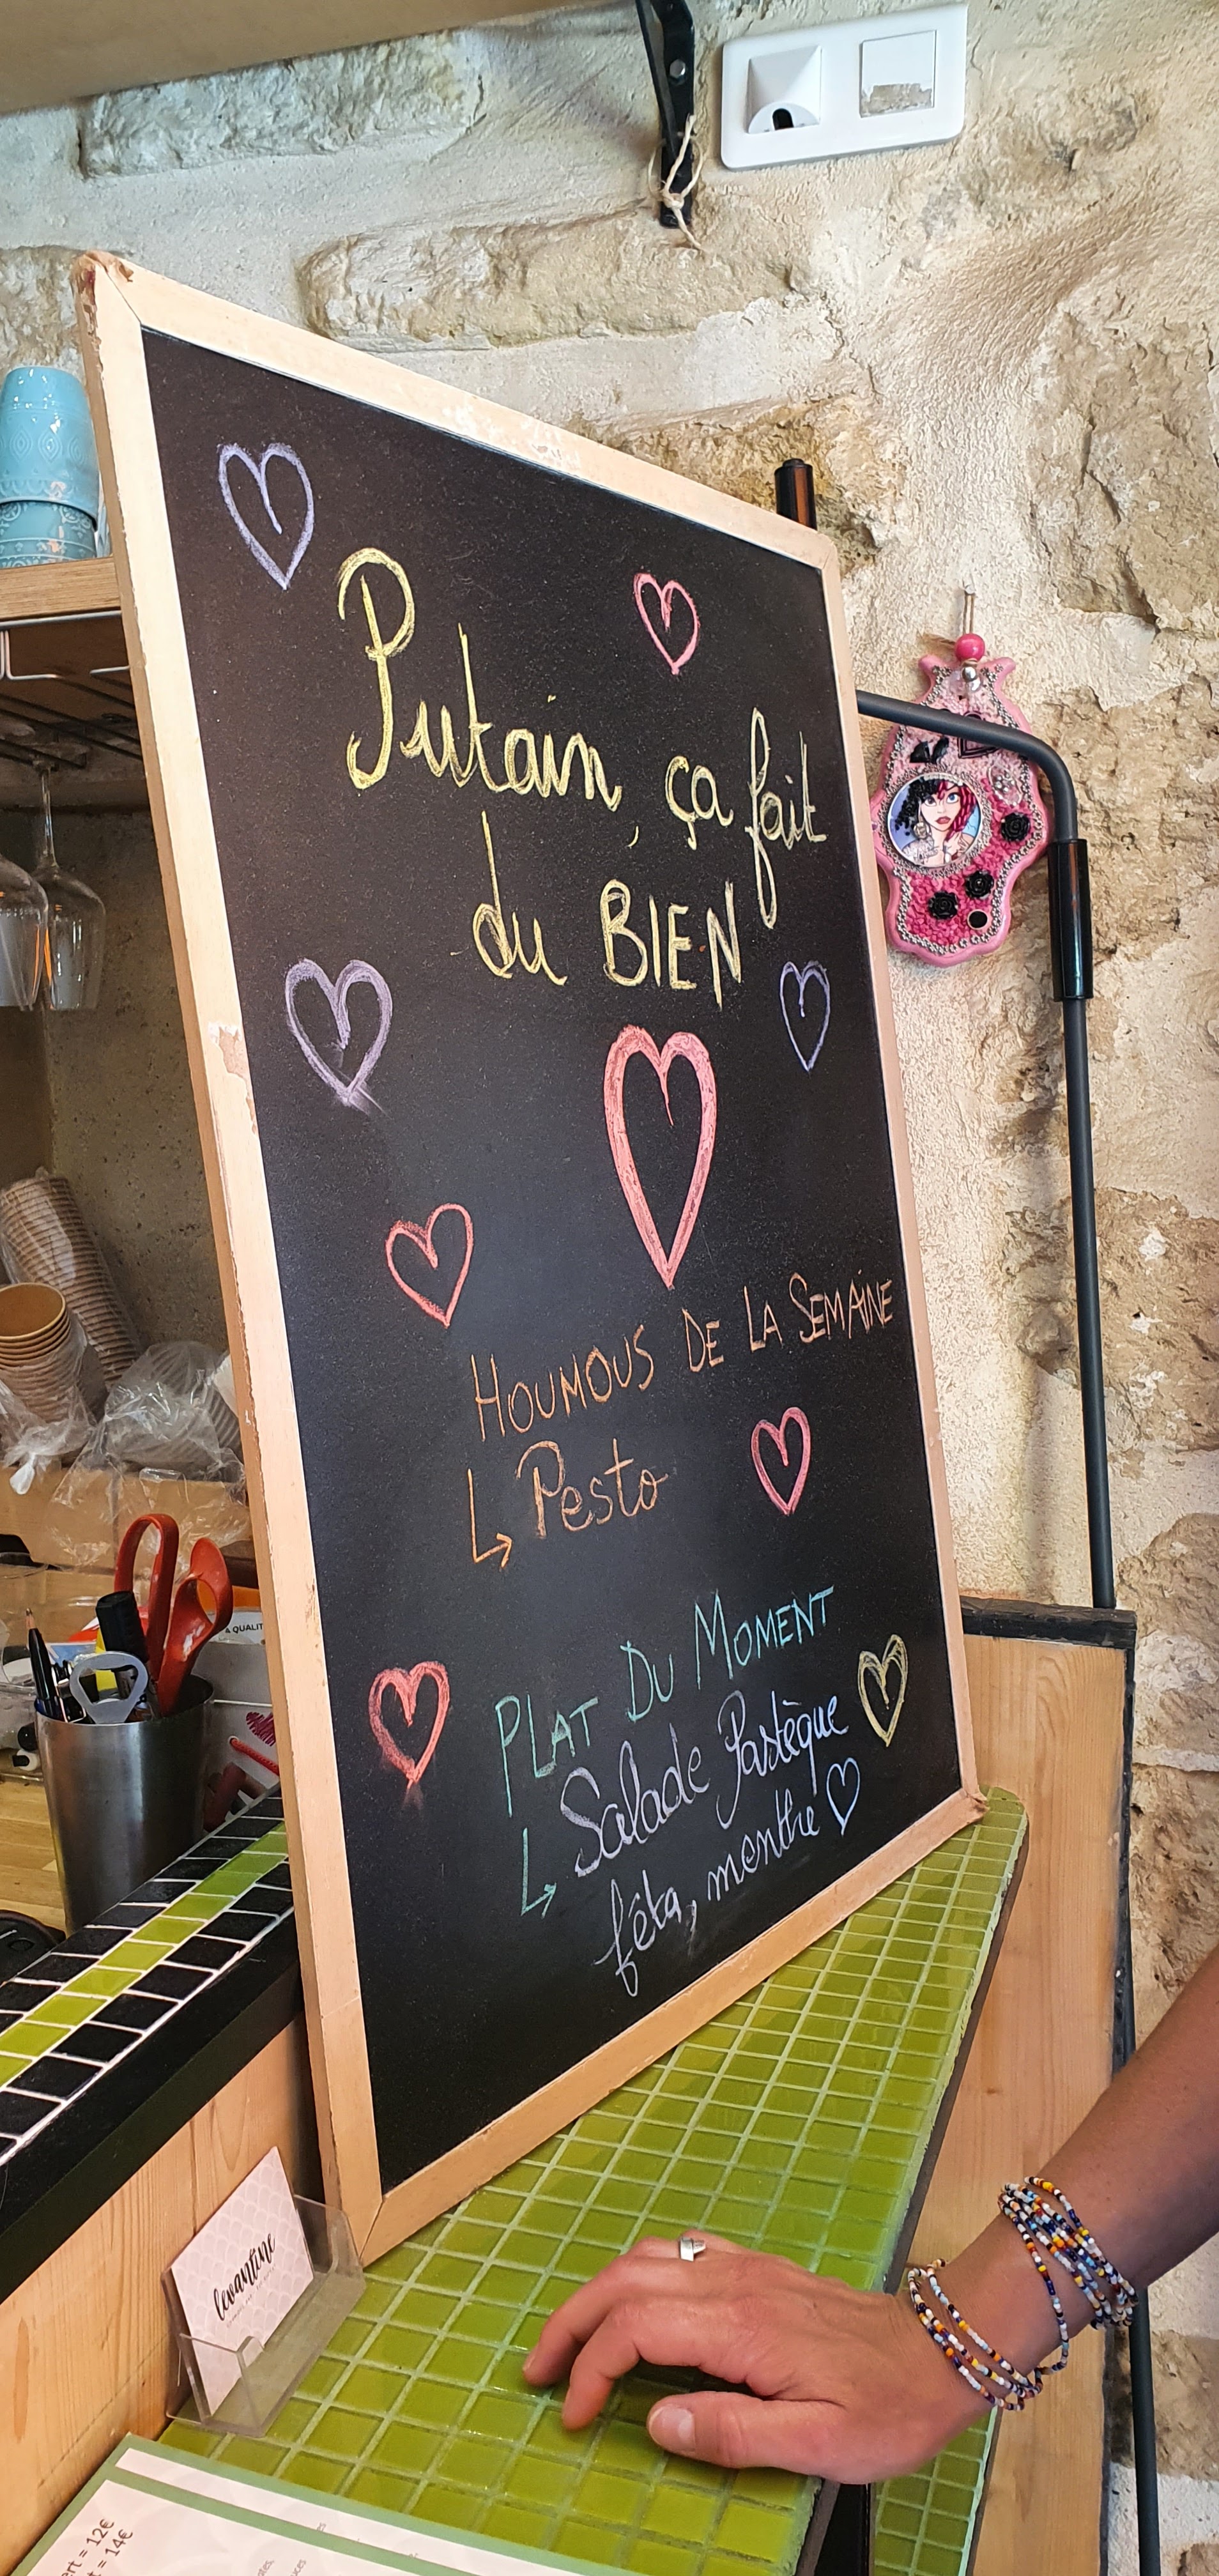 Putain, ça fait
du BIEN
HOUMOUS DE LA SEMAINE
↳ Pesto
PLAT DU MOMENT
↳ Salade Pastèque
fêta, menthe ♡
& QUALIT
levantine
ert = 12€
t = 14€